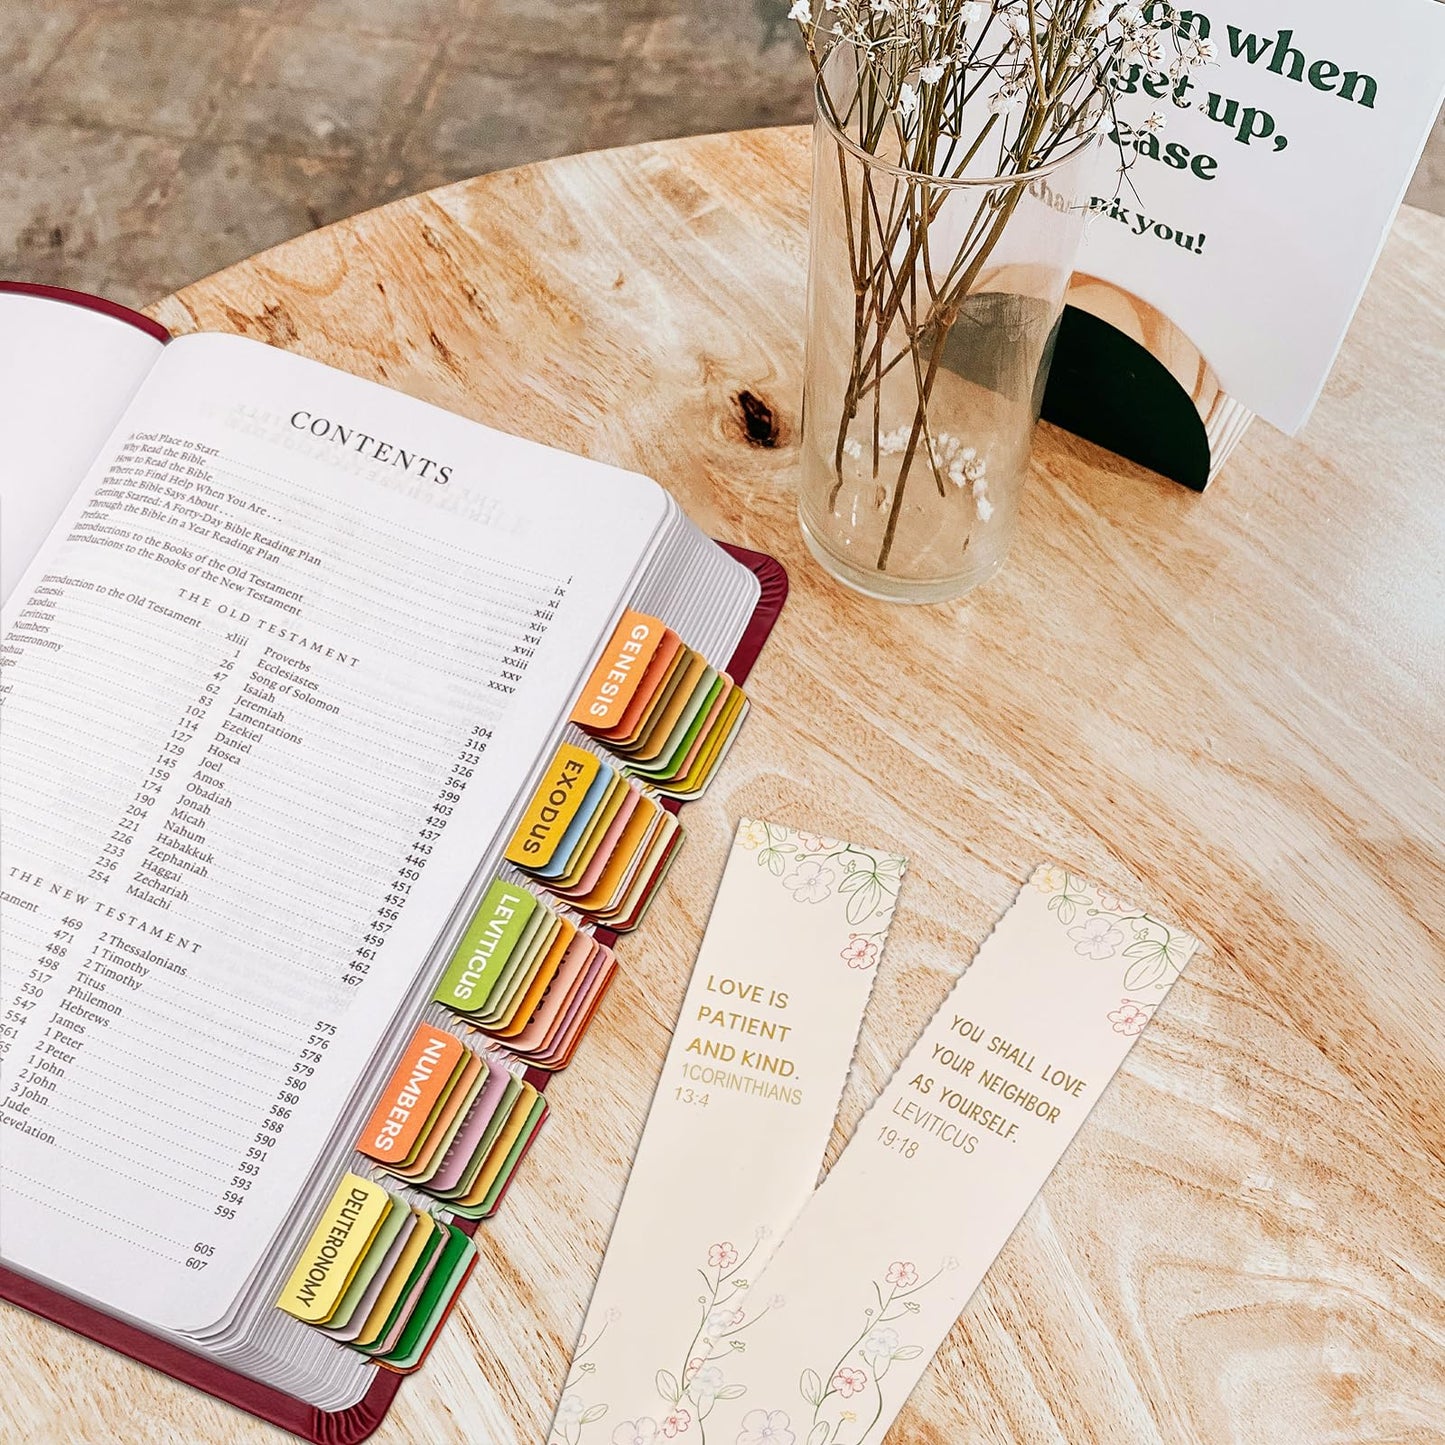 on when
get up,
ease
thank you!
CONTENTS
A Good Place to Start
Why Read the Bible
How to Read the Bible
Where to Find Help When You Are . . .
What the Bible Says About . . .
Getting Started: A Forty-Day Bible Reading Plan
Through the Bible in a Year Reading Plan
Preface
Introductions to the Books of the Old Testament
Introductions to the Books of the New Testament
i
ix
xi
xiii
xiv
xvi
xvii
xxiii
xxv
xxxv
THE OLD TESTAMENT
Introduction to the Old Testament xliii
Genesis 1
Exodus 26
Leviticus 47
Numbers 62
Deuteronomy 83
102
114
127
129
145
159
174
190
204
221
226
233
236
254
Proverbs 304
Ecclesiastes 318
Song of Solomon 323
Isaiah 326
Jeremiah 364
Lamentations 399
Ezekiel 403
Daniel 429
Hosea 437
Joel 443
Amos 446
Obadiah 450
Jonah 451
Micah 452
Nahum 456
Habakkuk 457
Zephaniah 459
Haggai 461
Zechariah 462
Malachi 467
THE NEW TESTAMENT
469
471
488
498
517
530
547
554
561
2 Thessalonians 575
1 Timothy 576
2 Timothy 578
Titus 579
Philemon 580
Hebrews 580
James 586
1 Peter 588
2 Peter 590
1 John 591
2 John 593
3 John 593
Jude 594
Revelation 595
605
607
GENESIS
EXODUS
LEVITICUS
NUMBERS
DEUTERONOMY
LOVE IS
PATIENT
AND KIND.
1CORINTHIANS
13:4
YOU SHALL LOVE
YOUR NEIGHBOR
AS YOURSELF.
LEVITICUS
19:18